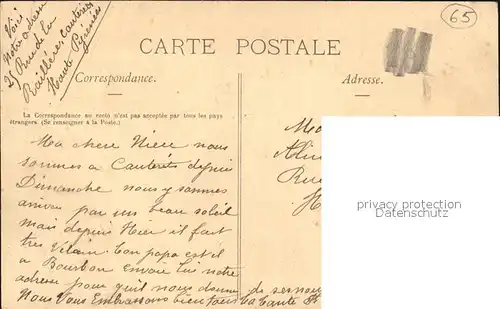 65
Voici
Notre adresse
25 Rue de la
Raillères Cauterets
Haute Pyrénées
CARTE POSTALE
Correspondance.
Adresse.
La Correspondance au recto n'est pas acceptée par tous les pays
étrangers. (Se renseigner à la Poste.)
Ma chere Niece nous
sommes a Cauterets depuis
Dimanche nous y sommes
arrives par un beau soleil
mais depuis Hier il fait
tres Vilain. Ton papa est il
a Bourbon envoie lui notre
adresse pour qu'il nous donne de ses nou
Nous Vous Embrassons bien tous ta tante
Rue
privacy protection
Datenschutz